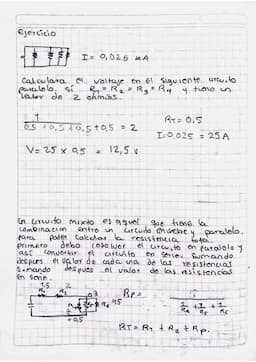 Ejercicio
I = 0,025 KA
Calculara el voltaje en el siguiente circuito
paralelo, si R1 = R2 = R3 = R4 y tiene un
valor de 2 ohmios.
1
0,5 + 0,5 + 0,5 + 0,5 = 2
RT = 0,5
I = 0,025 = 25A
V = 25 x 0,5 = 12,5 v
Un circuito mixto es aquel que tiene la
combinación entre un circuito en serie y paralelo.
para poder calcular la resistencia total
primero debo resolver el circuito en paralelo y
así convertir el circuito en serie. Sumando
despues el valor de cada una de las resistencias
Sumando despues el valor de las resistencias
en serie.
1,5 2
0,3
R4 95
0,5
Rp =
1
RT = R1 + R2 + Rp.